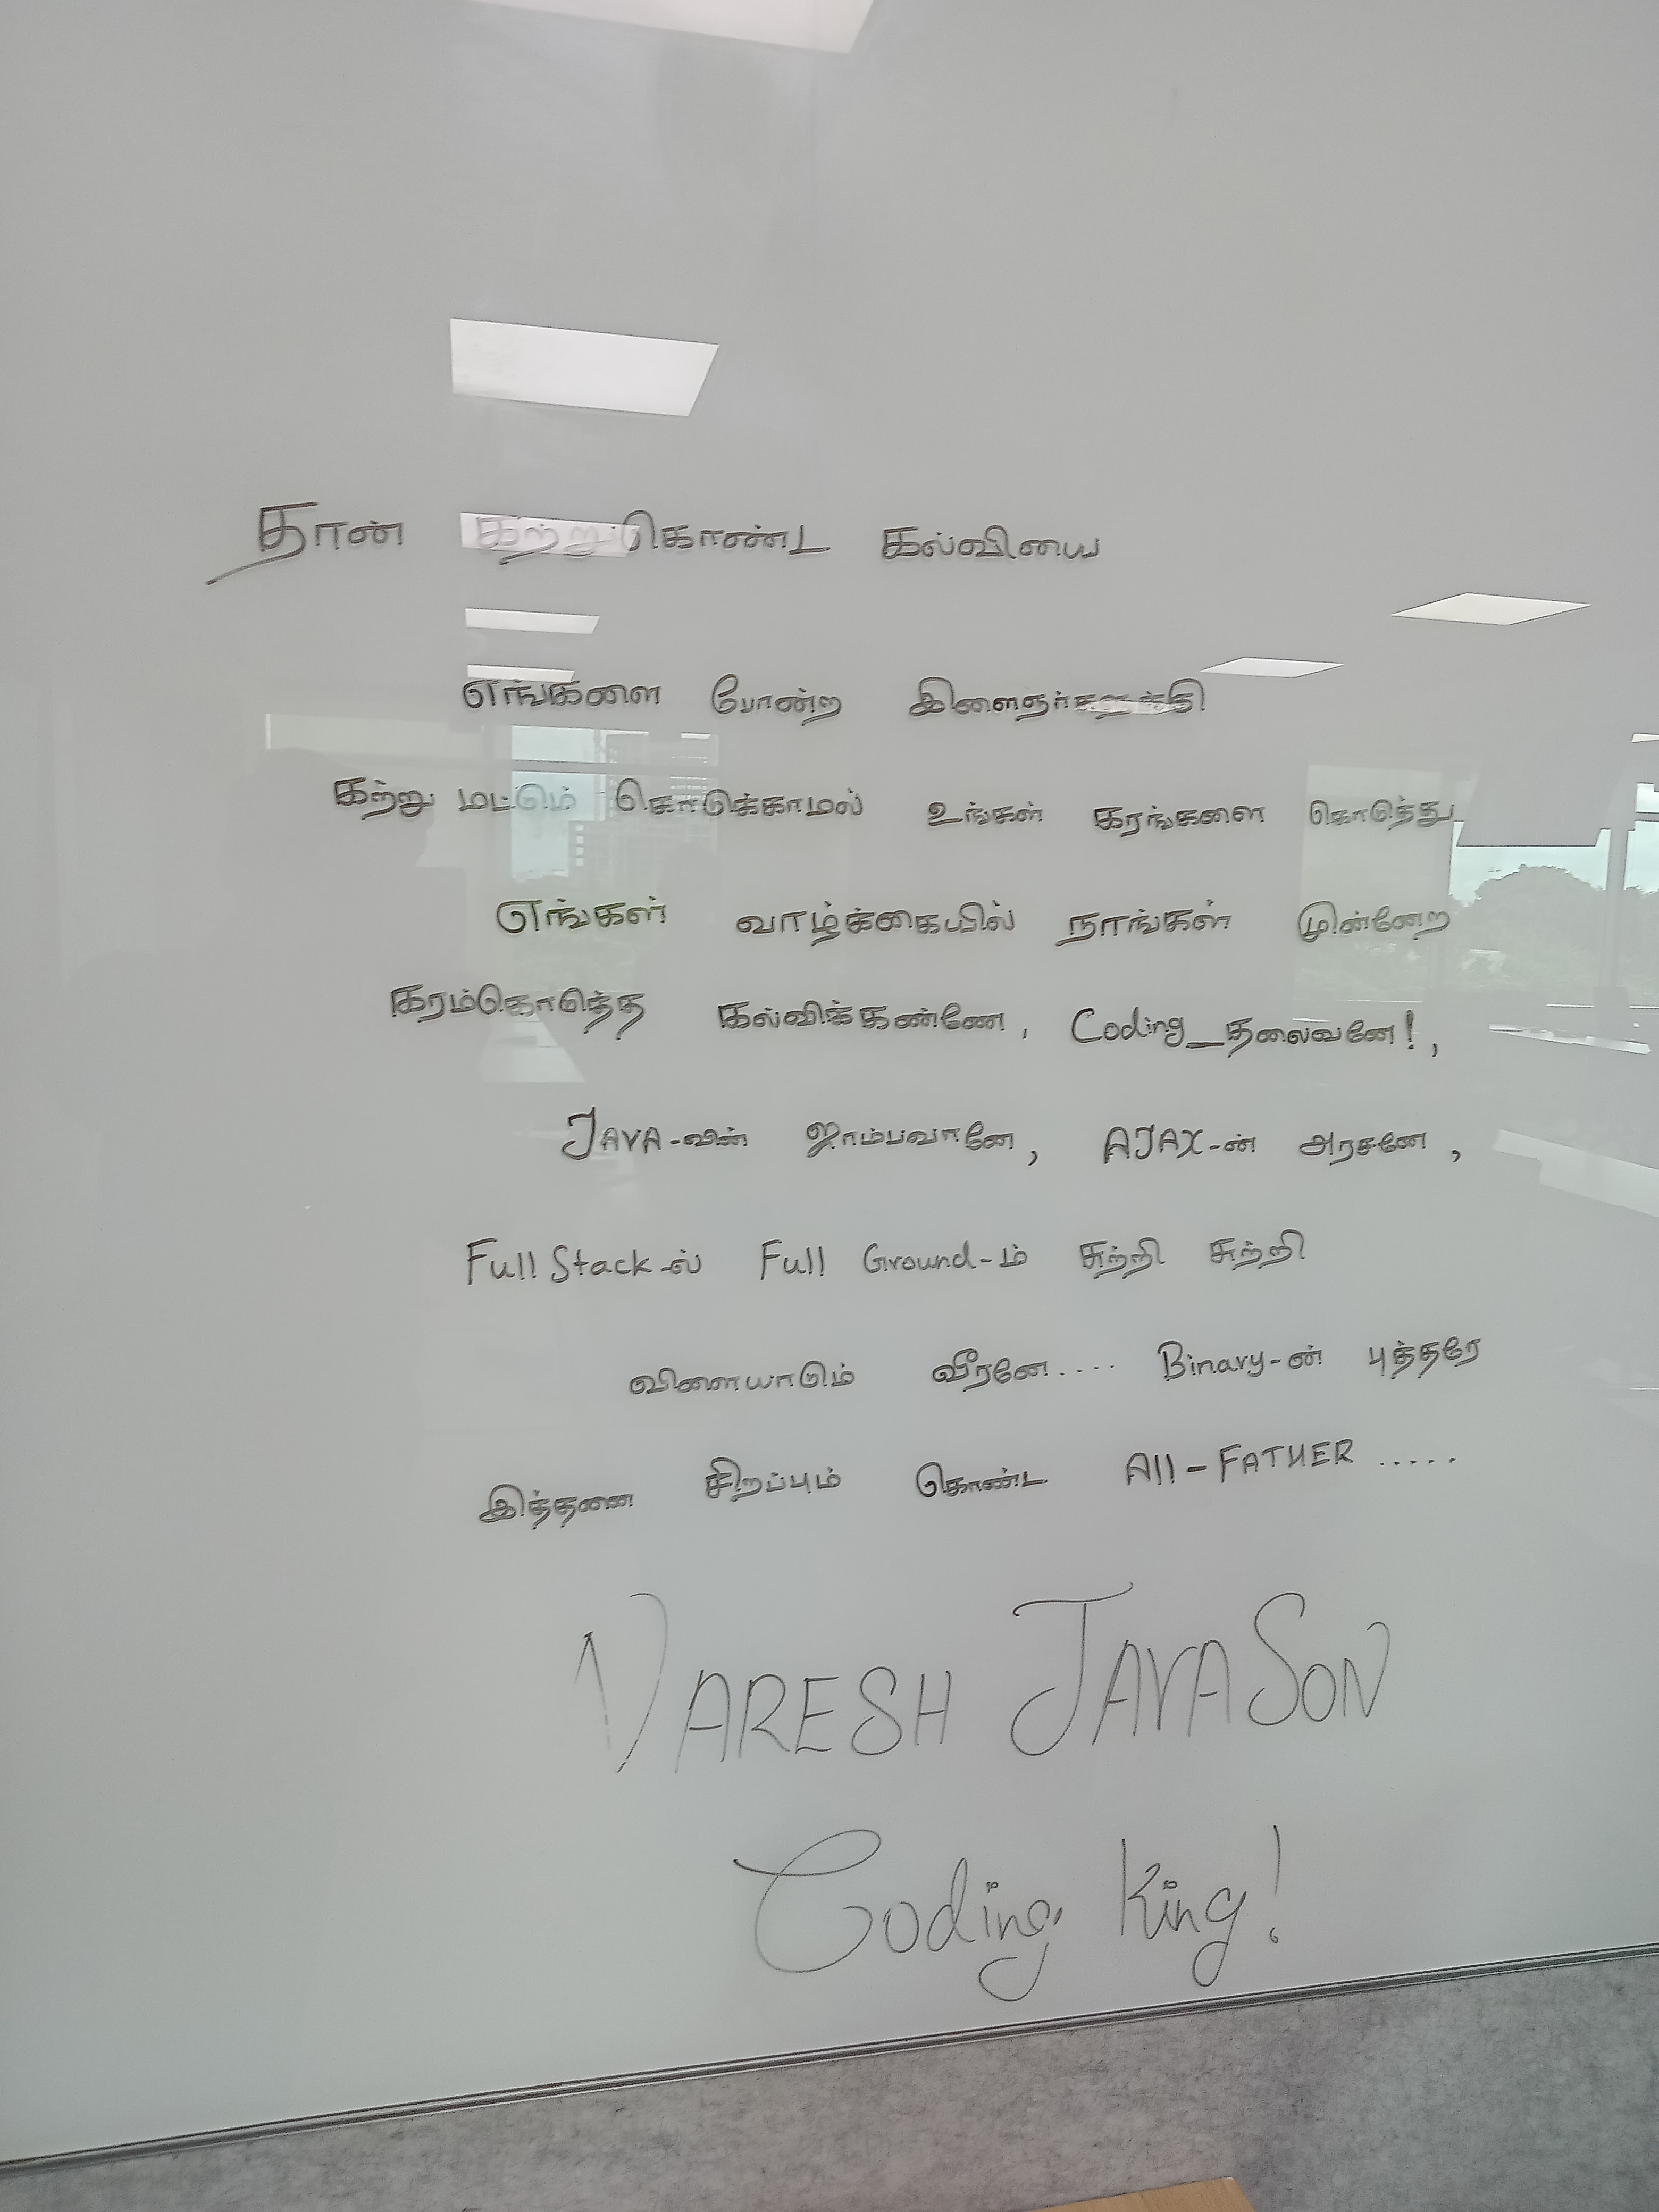 தான் கற்றுகொண்ட கல்வியை
எங்களை போன்ற
கற்று மட்டும் கொடுக்காமல் உங்கள் கரங்களை கொடுத்து
எங்கள் வாழ்க்கையில் நாங்கள் முன்னேற
கரம்கொடுத்த கல்விக்கண்ணே, Coding_தலைவனே!,
JAVA-வின் ஜாம்பவானே, AJAX-ன் அரசனே,
Full Stack-ல் Full Ground-ம் சுற்றி சுற்றி
விளையாடும் வீரனே.... Binary-ன் புத்தரே
இத்தனை சிறப்பும் கொண்ட All-FATHER .....
NARESH JAVASON
Coding King!